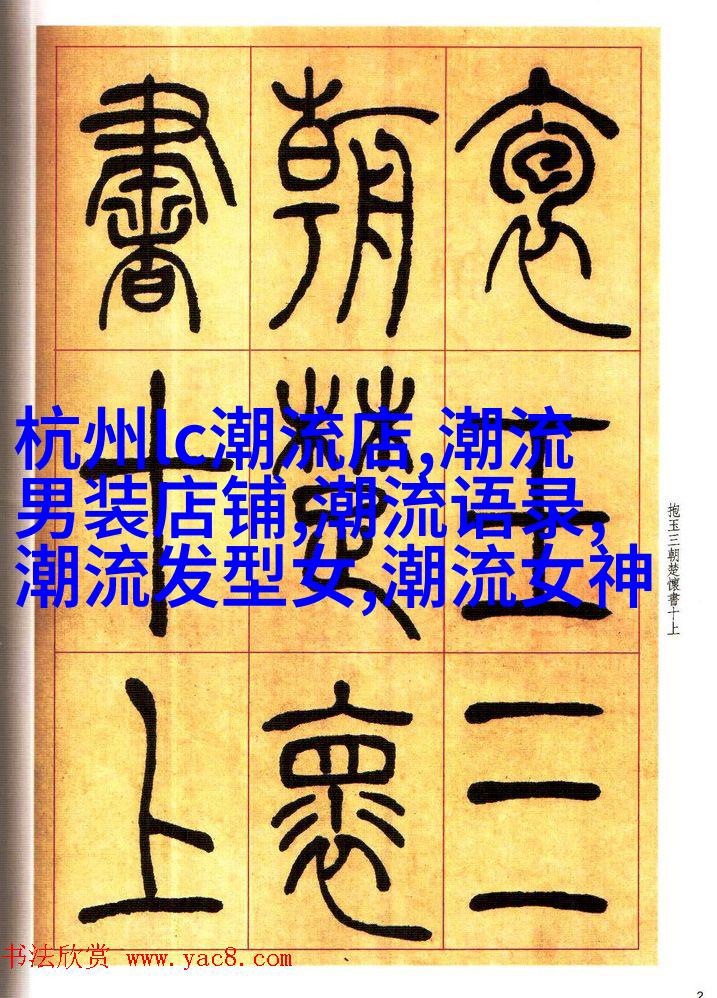 裒朝書
玉楚十
三褱上
杭州lc潮流店,潮流
男装店铺,潮流语录,
潮流发型女,潮流女神
抱玉三朝楚懷書十上
书法欣赏 www.yac8.com
2